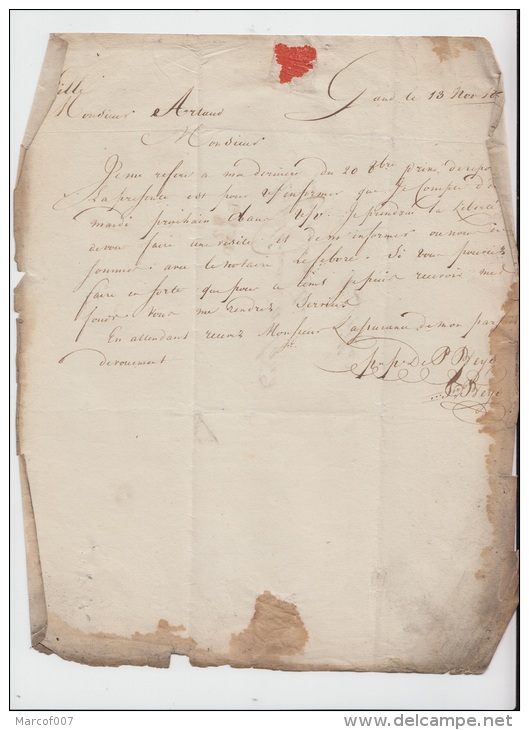 Gand le 13 Nov
Monsieur Artaud
Monsieur
Je me refere a ma derniere du 20
La presente est pour vous informer que je compte
mardi prochain dans je prendrai la liberté
de vous faire une visite et de m informer ou nous
sommes avec le notaire Lefebvre. Si vous pouvez
faire en sorte que pour ce tems je puis recevoir mes
vous me rendrez Service
En attendant recevez Monsieur L assurance de mon
devouement
De P Beyé
Marcof007